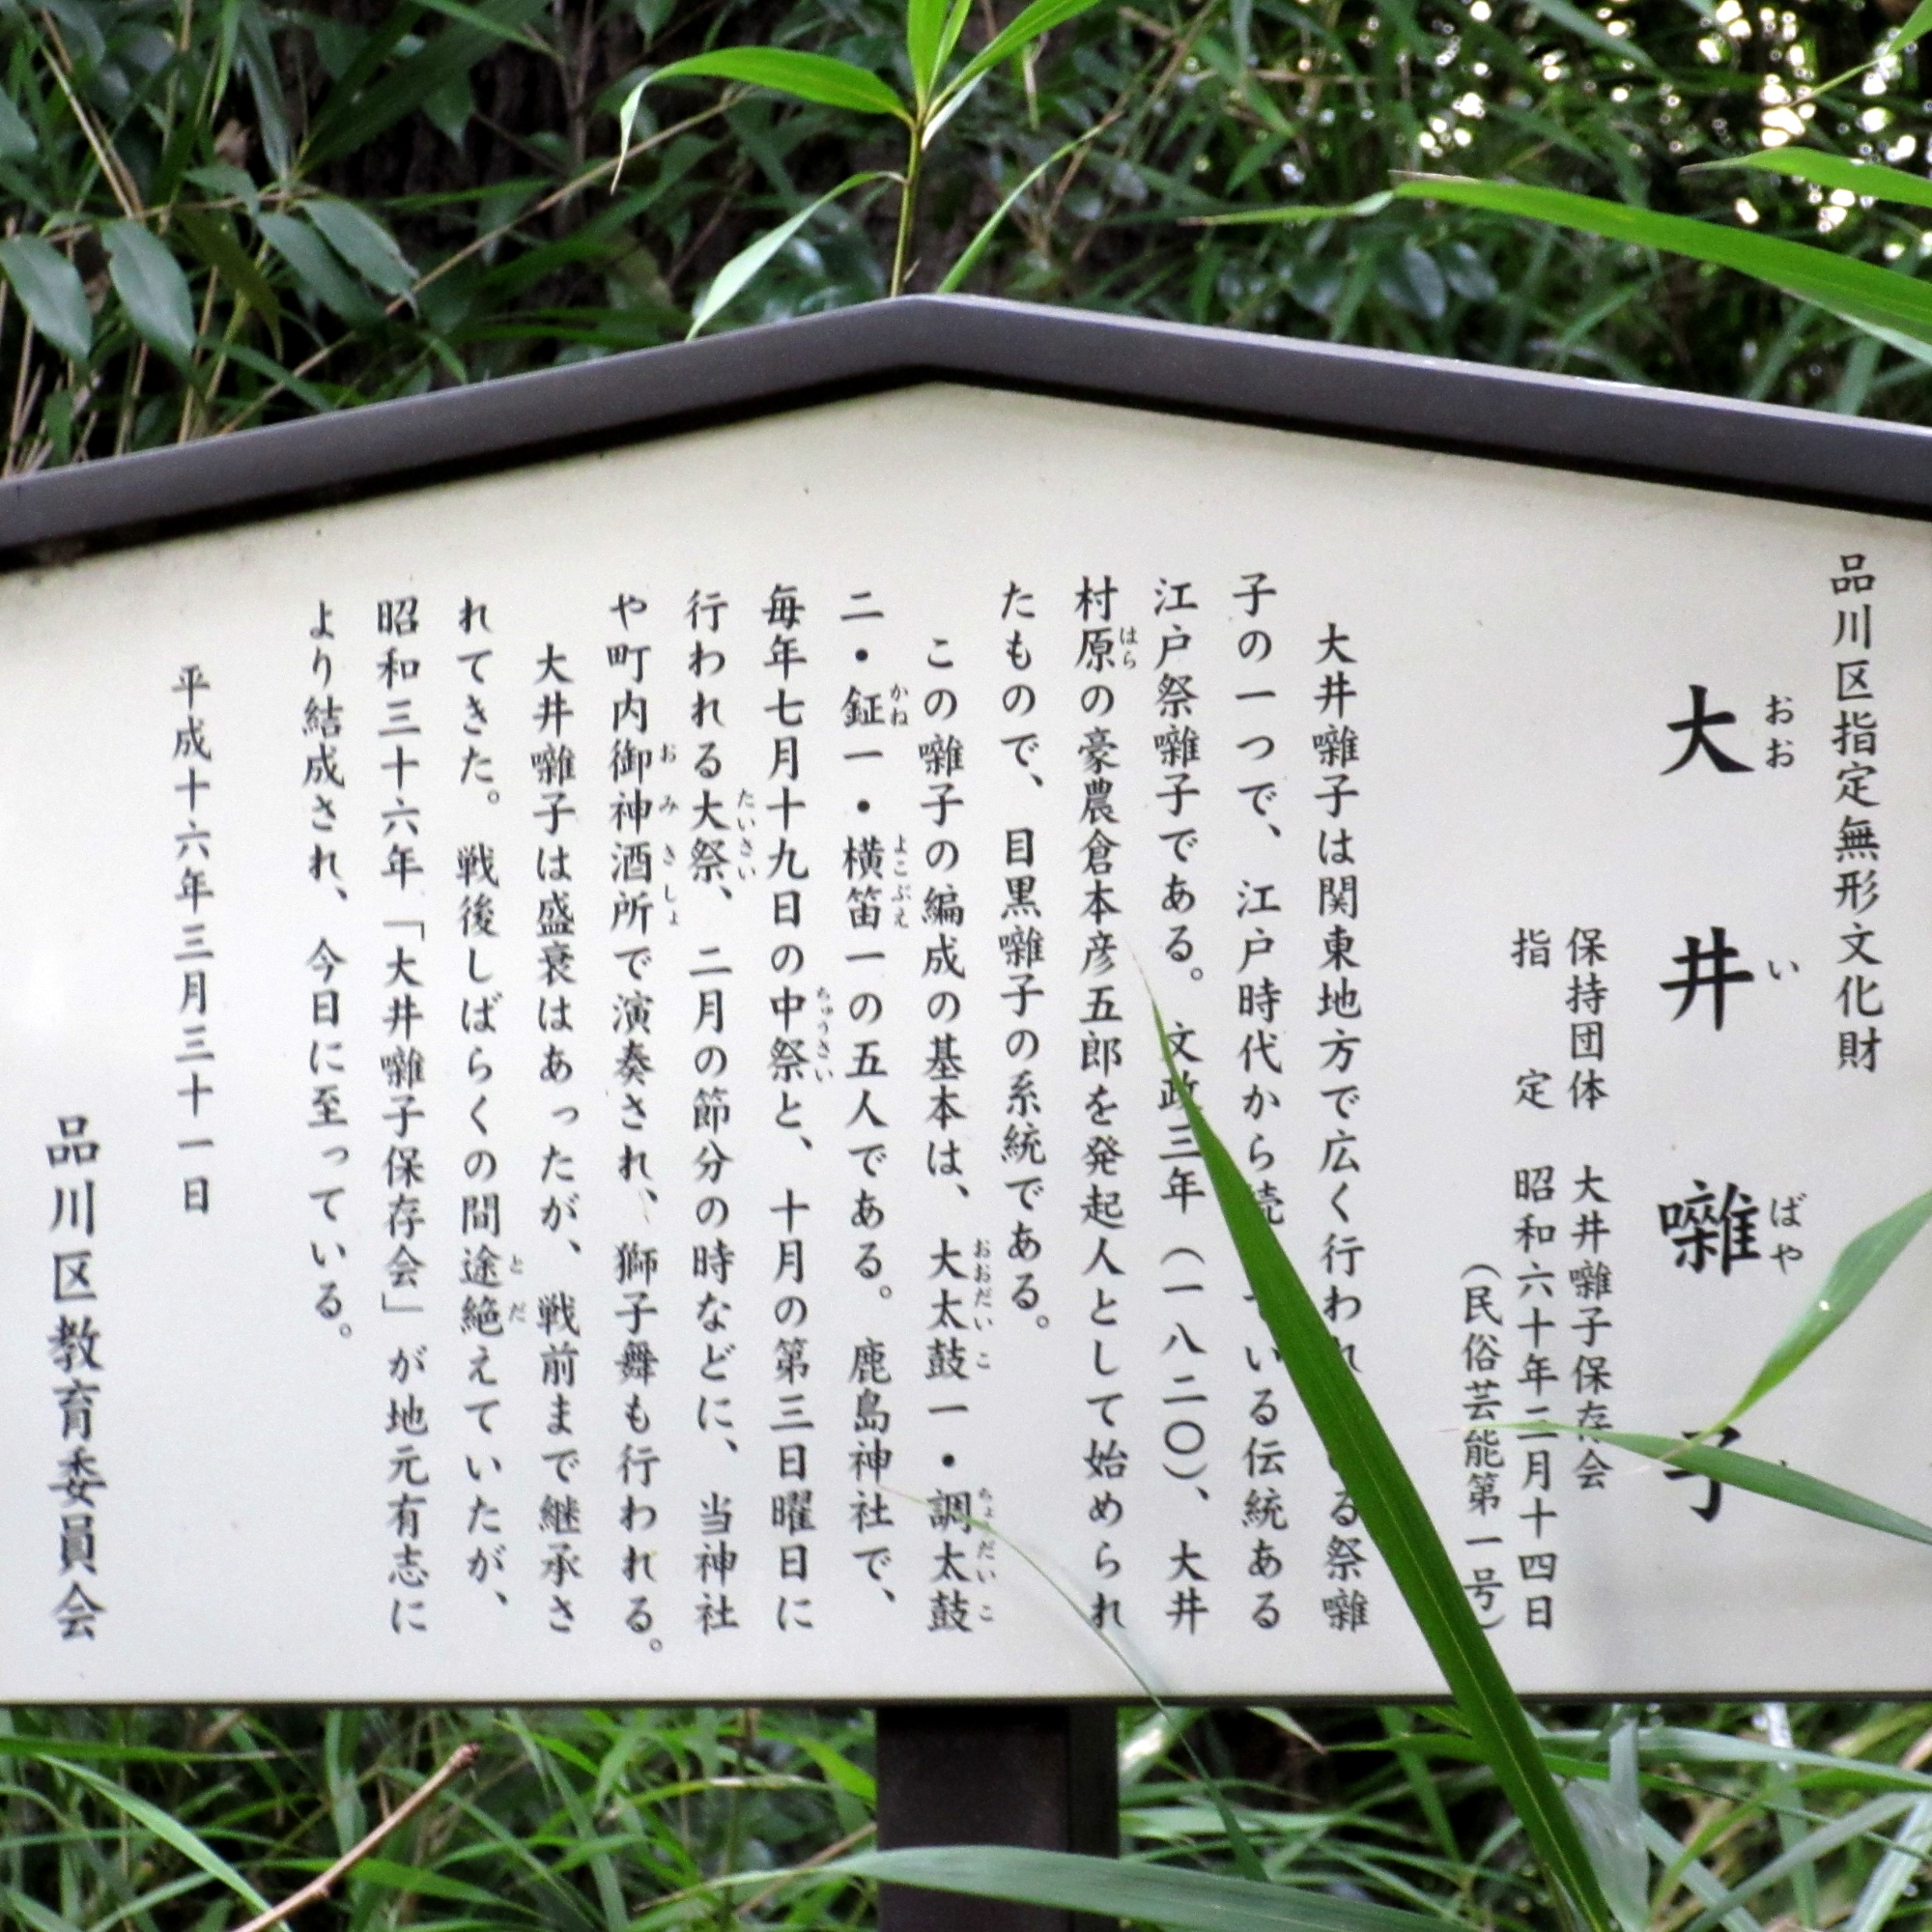 品川区指定無形文化財
おお い ばや
大井囃子
保持団体 大井囃子保存会
指定 昭和六十年二月十四日
（民俗芸能第一号）
大井囃子は関東地方で広く行われ る祭囃
子の一つで、江戸時代から続 ている伝統ある
江戸祭囃子である。文政三年（一八二〇）、大井
はら
村原の豪農倉本彦五郎を発起人として始められ
たもので、目黒囃子の系統である。
おおだいこ ちょうだいこ
この囃子の編成の基本は、大太鼓一・調太鼓
かね よこぶえ
二・鉦一・横笛一の五人である。鹿島神社で、
ちゅうさい
毎年七月十九日の中祭と、十月の第三日曜日に
たいさい
行われる大祭、二月の節分の時などに、当神社
おみきしょ
や町内御神酒所で演奏され、獅子舞も行われる。
大井囃子は盛衰はあったが、戦前まで継承さ
とだ
れてきた。戦後しばらくの間途絶えていたが、
昭和三十六年「大井囃子保存会」が地元有志に
より結成され、今日に至っている。
平成十六年三月三十一日
品川区教育委員会